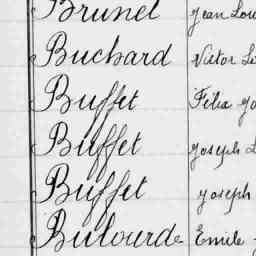 Brunel Jean Lou
Buchard Victor Le
Buffet Félix Jo
Buffet Joseph L
Buffet Joseph
Bulourde Emile